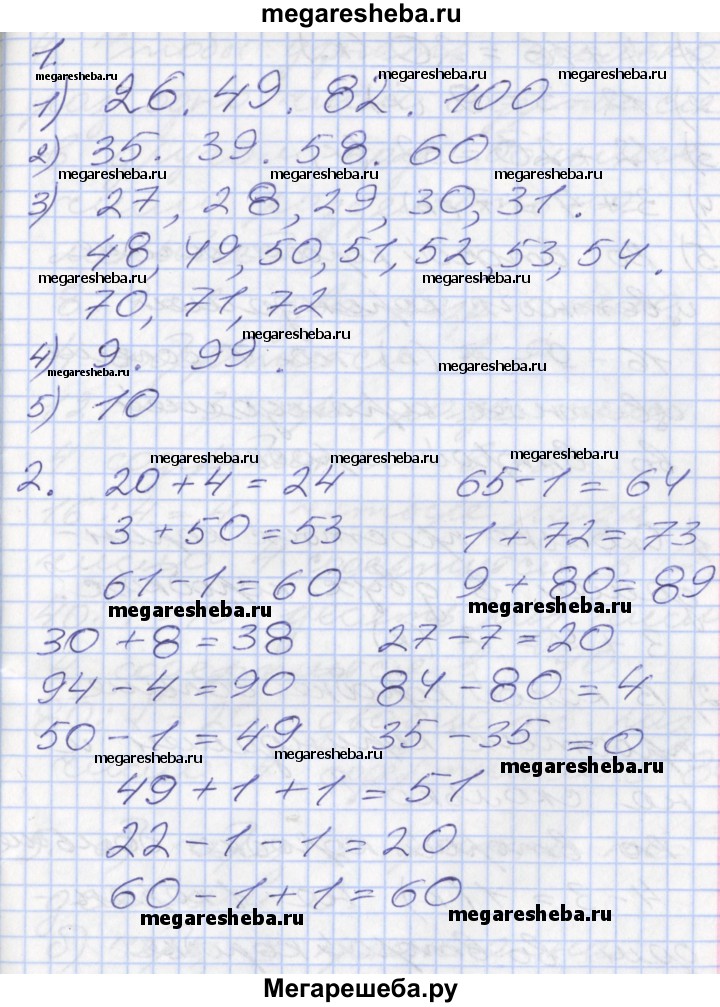 megaresheba.ru
1.
megaresheba.ru megaresheba.ru megaresheba.ru
1) 26. 49. 82. 100
2) 35. 39. 58. 60
megaresheba.ru megaresheba.ru megaresheba.ru
3) 27, 28, 29, 30, 31.
48, 49, 50, 51, 52, 53, 54.
megaresheba.ru megaresheba.ru
70, 71, 72
megaresheba.ru
4) 9. 99.
megaresheba.ru megaresheba.ru
5) 10
megaresheba.ru megaresheba.ru megaresheba.ru
2. 20 + 4 = 24 65 - 1 = 64
3 + 50 = 53 1 + 72 = 73
61 - 1 = 60 9 + 80 = 89
megaresheba.ru megaresheba.ru
30 + 8 = 38 27 - 7 = 20
94 - 4 = 90 84 - 80 = 4
50 - 1 = 49 35 - 35 = 0
megaresheba.ru megaresheba.ru megaresheba.ru
49 + 1 + 1 = 51
22 - 1 - 1 = 20
60 - 1 + 1 = 60
megaresheba.ru megaresheba.ru
Мегарешеба.ру